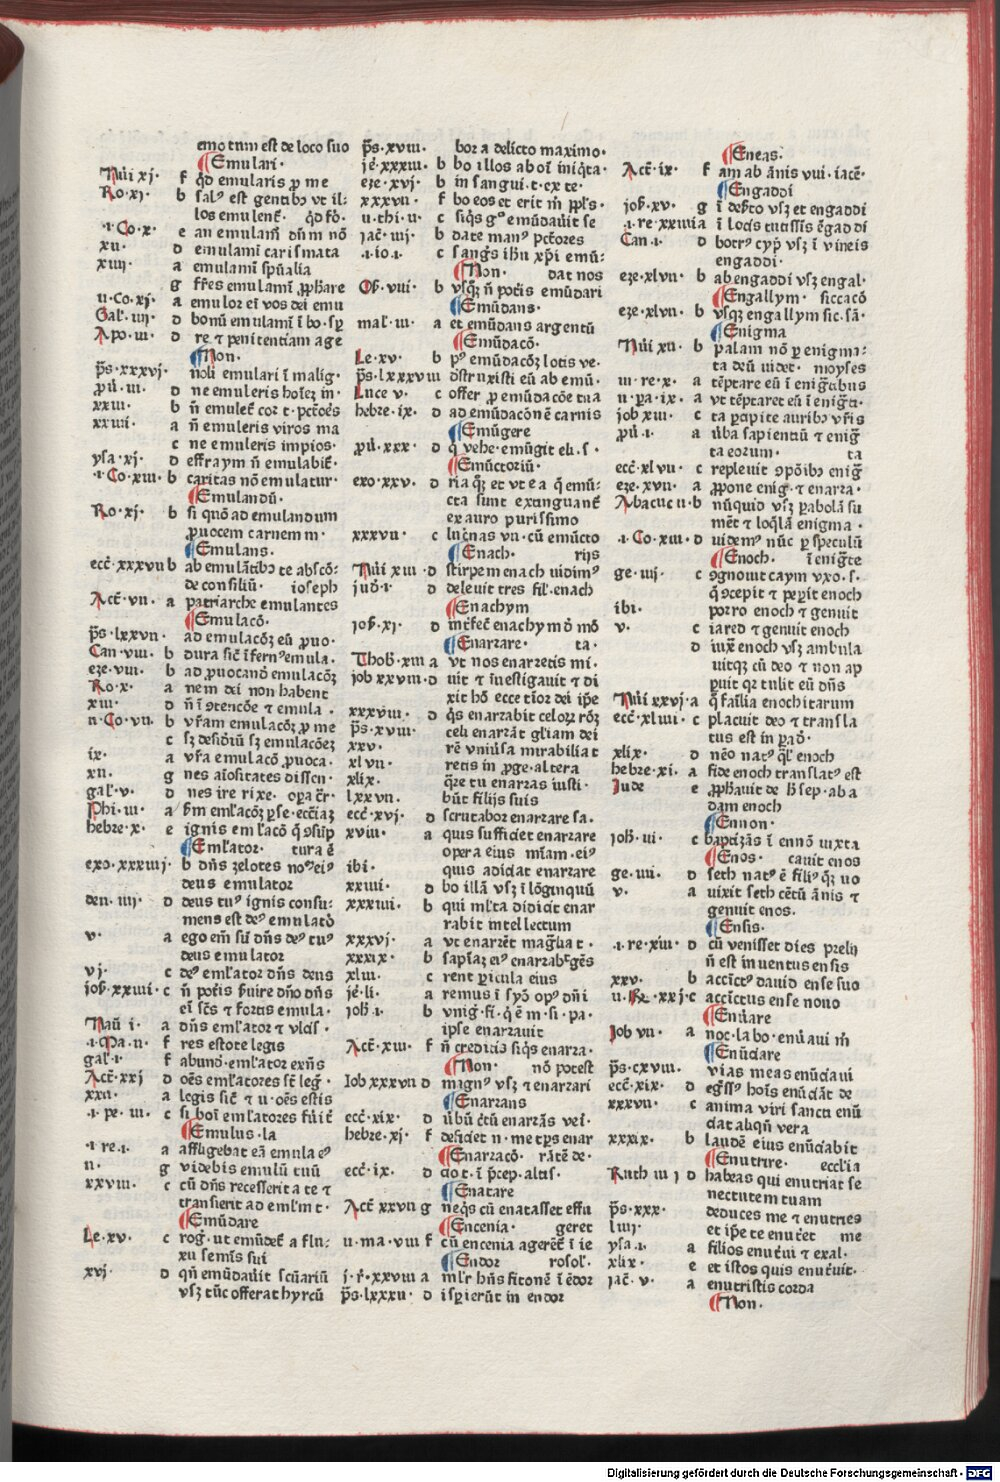 emotum est de loco suo
¶Emulari·
Nūi xj· f qd emularis ꝑ me
Ro·xj· b salꝰ est gentibꝫ vt il⸗
los emulent̄· qd fō·
·i·Co·x· e an emulam̄ dn̄m nō
xii· d emulamī carismata
xiiij· a emulamī spūalia
g fr̄es emulamī ꝓphare
ii·Co·xj· a emulor eī vos dei emu
Gal̄·iiij· d bonū emulamī ī bo·sꝑ
Apo·iii· d re ⁊ penitentiam age
¶Non·
ps̄·xxxvj· noli emulari ī malig·
ꝓu·iii· d ne emuleris hoīeꝫ in·
xxiii· b n̄ emulet̄ cor t·pctōes
xxiiii· a n̄ emuleris viros ma
c ne emuleris impios·
ysa·xj· d effraym n̄ emulabit̄·
·i·Co·xiii· b caritas nō emulatur·
¶Emulandū·
Ro·xj· b si quō ad emulandum
ꝓuocem carnem m·
¶Emulans·
ecc̄·xxxvii b ab emulātibꝫ te abscō⸗
de consiliū· ioseph
Act̄·vii· a patriarche emulantes
¶Emulacō·
ps̄·lxxvii· ad emulacōꝫ eū ꝓuo·
Can·viii· b dura sic̄ īfernꝰ emula·
eze·viii· b ad ꝓuocandō emulacōꝫ
Ro·x· a nem dei non habent
xiii· d n̄ ī ꝯtencōe ⁊ emula·
ii·Co·vii· b vr̄am emulacōꝫ ꝓ me
c sꝫ desideriū sꝫ emulacōeꝫ
ix· a vr̄a emulacō ꝓuoca·
xii· g nes aīositates dissen·
gal̄·v· d nes ire rixe· oꝑa c̄r·
Phi·iii· a ẜm eml̄acōꝫ ꝑse·ecc̄iaꝫ
hebre·x· e ignis eml̄acō q̄ ꝯsūp
¶Eml̄ator· tura ē
exo·xxxiiij· b dn̄s zelotes noꝰ eiꝰ
deus emulator
deu·iiij· d deus tuꝰ ignis consu⸗
mens est deꝰ emulatō
v· a ego em̄ sū dn̄s deꝰ tuꝰ
deus emulator
vj· c deꝰ emlator dn̄s deus
iosͩ·xxiiii· c n̄ potīs ẜuire dn̄o dn̄s
eī sc̄s ⁊ fortis emula·
Naū i· a dn̄s eml̄ator ⁊ vlcīs·
·i·Ma·ii· f res estote legis
gal̄·i· f abundō·emlator exn̄s
Act̄·xxj d oēs eml̄atores st̄ leg̉·
xxii· a legis sic̄ ⁊ v·oēs estis
·i·pe·iii· c si boī emlatores fu͛it̄
¶Emulus·la
·i·re·i· a affligebat eā emula eꝰ
ii· g videbis emulū tuū
xxviii· c cū dn̄s recesserit a te ⁊
transierit ad eml̄m t·
¶Emūdare
Le·xv· c rog̉·ut emūdet̄ a flu⸗
xu seminis sui
xvj· d qn̄ emūdauit sc̄uariū
vsꝫ tūc offerat hyrcū
ps̄·xviii· bor a delicto maximo·
je͛·xxxiii· b bo illos ab oī iniq̄ta·
eze·xvj· b in sangui·t·ex te·
xxxvii· f bo eos et erit m̄ ppl̄s·
ii·thi·ii· c siq̄s gꝰ emūdauit se
jac̄·iiij· b date manꝰ pctōres
·i·io·i· c sang͛s ihū xp̄i emū⸗
¶Non· dat nos
Ob·viii· b vsq̄ꝫ n̄ potis emūdari
¶Emūdans·
mal̄·iii· a et emūdans argentū
¶Emūdacō·
Le·xv· b pꝰ emūdacōꝫ lotis ve·
ps̄·lxxxviii dstruxisti eū ab emū·
Luce v· c offer ꝓ emūdacōe tua
hebre·ix· d ad emūdacōnē carnis
¶Emūgere
ꝓu·xxx· d q̄ vehe·emūgit eli·s·
¶Emūctoriū·
exo·xxv· d ria q̄ꝫ et vt ea q̄ emū⸗
cta sunt extinguant̄
ex auro purissimo
xxxvii· c luc̄nas vii·cū emūcto
¶Enach· rijs
Nūi xiii·d stirpem enach uidimꝰ
jud̄·i· d deleuit tres fil̄·enach
¶Enachym
iosͩ·xj· d int̄fec̄ enachym d̄ mō
¶Enarrare· ta·
Thob̄·xiii a vt nos enarretis mi·
iob xxviii·d uit ⁊ īuestigauit ⁊ di
xit hō ecce tīor dei ip̄e
xxxviii· d q̄s enarrabit celoꝝ rōꝫ
ps̄·xviii· celi enarrāt gl̄iam dei
xxv· rē vniu͛sa mirabilia t
xlvii· retis in ꝓge·altera
xlix· q̄re tu enarras iusti·
lxxvii· būt filijs suis
ecc̄·xvj· d scrutabor enarrare sa·
xviii· a quis sufficiet enarrare
opera eius mīam·eiꝰ
ibi· quis adiciat enarrare
xxiiii· d bo illā vsꝫ ī lōginquū
xxxiiii· b qui ml̄ta didicit enar
rabit intellectum
xxxvj· a vt enarrēt mag͛lia t·
xxxix· b sapīaꝫ eiꝰ enarrab̄t gēs
xliii· c rent ꝑicula eius
je͛·li· a remus ī syō opꝰ dn̄i
job̄·i· b vnig̉·fi·q̄ ē m·si·pa·
ipse enarrauit
Act̄·xiii· f n̄ credit͛ siq̄s enarra·
¶Non· nō potest
Iob xxxvii d magnꝰ vsꝫ ⁊ enarrari
¶Enarrans
ecc̄·xix· d u͛bū c̄tū enarrās vei·
hebre·xj· f deficiet n·me tp̄s enar
¶Enarracō· rātē de·
ecc̄·ix· d cio t·ī p̄cep·altis·
¶Enatare
Act̄ xxvii g neq̄s cū enatasset effu
¶Encenia· geret
ii·ma·viii f cū encenia ageret̄ ī ie
¶Endor rosol̄·
j·r͛·xxviii a ml̄r hn̄s fitonē ī ēdor
ps̄·lxxxii· d isꝑierūt in endor
¶Eneas·
Act̄·ix· f am ab ānis viii·iacē·
¶Engaddi
iosͩ·xv· g ī deẜto vsꝫ et engaddi
·i·re·xxiiii a ī locis tutissīs ēgaddi
Can·i· d botrꝰ cyp̄ vsꝫ ī vineis
engaddi·
eze·xlvii· b ab engaddi vsꝫ engal·
¶Engallym· siccacō
eze·xlvii· b vsqꝫ engallym sic·sā·
¶Enigma
Nūi xii· b palam nō ꝑ enigma⸗
ta deū uidet· moyses
iii·re·x· a tēptare eū ī enig̉tibus
ii·pa·ix· a vt tēptaret eū ī enig̉ta·
iob xiii· c ta ꝑcipite auribꝫ vr̄is
ꝓu·i· a u͛ba sapientū ⁊ enig̉
ta eorum· ta
ecc̄·xlvii· c repleuit ꝯpōibꝫ enig̉
eze·xvii· a ꝓpone enig·⁊ enarra·
Abacuc ii·b nūquid vsꝫ ꝑabolā su
mēt ⁊ loq̄lā enigma·
·i·Co·xiii·d videmꝰ nūc ꝑ speculū
¶Enoch· ī enig̉te
ge·iiij· c ꝯgnouit caym vxo·s·
q̄ ꝯcepit ⁊ peꝑit enoch
ibi· porro enoch ⁊ genuit
v· c iared ⁊ genuit enoch
d uix̄ enoch vsꝫ ambula
uitqꝫ cū deo ⁊ non ap
ꝑuit qꝛ tulit eū dn̄s
Nūi xxvj·a q̄ fam̄ilia enochitarum
ecc̄·xliiii·c placuit deo ⁊ transla
tus est in ꝑadō·
xlix· d nēo natꝰ q̄l̄ enoch
hebre·xi· a fide enoch translatꝰ est
Jude e ꝓphauit de h̄ sep·ab a
dam enoch
¶Ennon·
joh̄·iii· c baptizās ī ennō iuxta
¶Enos· cauit enos
ge·iiii· d seth natꝰ ē filiꝰ q̄ꝫ uo
v· a uixit seth cētū ānis ⁊
genuit enos·
¶Ensis·
·i·re·xiii· d cū venisset dies prelij
n̄ est inuentus ensis
xxv· b accīctꝰ dauid ense suo
ii·Re·xxj·c accīctus ense nouo
¶Enu͛are
Job vii· a noc·labo·enu͛aui m̄
¶Enūciare
ps̄·cxviii· vias meas enūciaui
ecc̄·xix· d eg͛ssꝰ hoīs enūciāt de
xxxvii· c anima viri sancti enū
ciat aliqn̄ vera
xxxix· b laudē eius enūciabit
¶Enutrire· ecclia
Ruth iiij d habeas qui enutriat se
nectutem tuam
ps̄·xxx· deduces me ⁊ enutries
liiij· et ip̄e te enut͛et me
ysa·i· a filios enut͛ui ⁊ exal·
xlix· e et istos quis enut͛uit·
jac̄·v· a enutristis corda
¶Non·
Digitalisierung gefördert durch die Deutsche Forschungsgemeinschaft · DFG